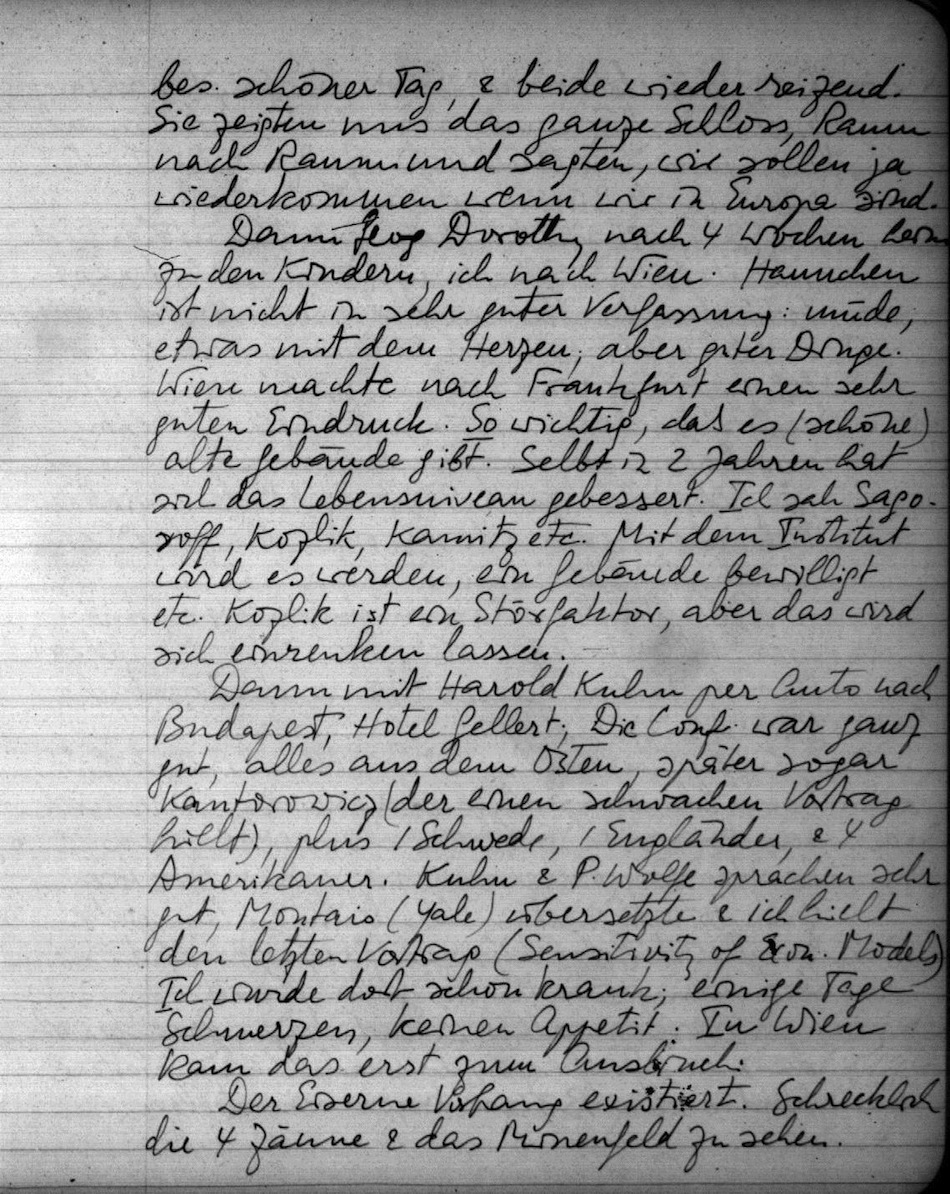 bes. schöner Tag, & beide wieder reizend.
Sie zeigten uns das ganze Schloss, Raum
nach Raum und sagten, wir sollen ja
wiederkommen wenn wir in Europa sind.
Dann flog Dorothy nach 4 Wochen heim
zu den Kindern, ich nach Wien. Hannchen
ist nicht in sehr guter Verfassung: müde,
etwas mit dem Herzen, aber guter Dinge.
Wien machte nach Frankfurt einen sehr
guten Eindruck. So wichtig, das es (schöne)
alte Gebäude gibt. Selbst in 2 Jahren hat
sich das Lebensniveau gebessert. Ich sah Sago-
roff, Kozlik, Kamitz etc. Mit dem Institut
wird es werden, ein Gebäude bewilligt
etc. Kozlik ist ein Störfaktor, aber das wird
sich einrenken lassen. –
Dann mit Harold Kuhn per Auto nach
Budapest, Hotel Gellert; Die Conf. war ganz
gut, alles aus dem Osten, später sogar
Kantorowicz (der einen schwachen Vortrag
hielt), plus 1 Schwede, 1 Engländer, & 4
Amerikaner. Kuhn & P. Wolfe sprachen sehr
gut, Montais (Yale) übersetzte & ich hielt
den letzten Vortrag (Sensitivity of Econ. Models)
Ich wurde dort schon krank; einige Tage
Schmerzen, keinen Appetit. In Wien
kam das erst zum Ausbruch.
Der Eiserne Vorhang existiert. Schrecklich
die 4 Zäune & das Minenfeld zu sehen.